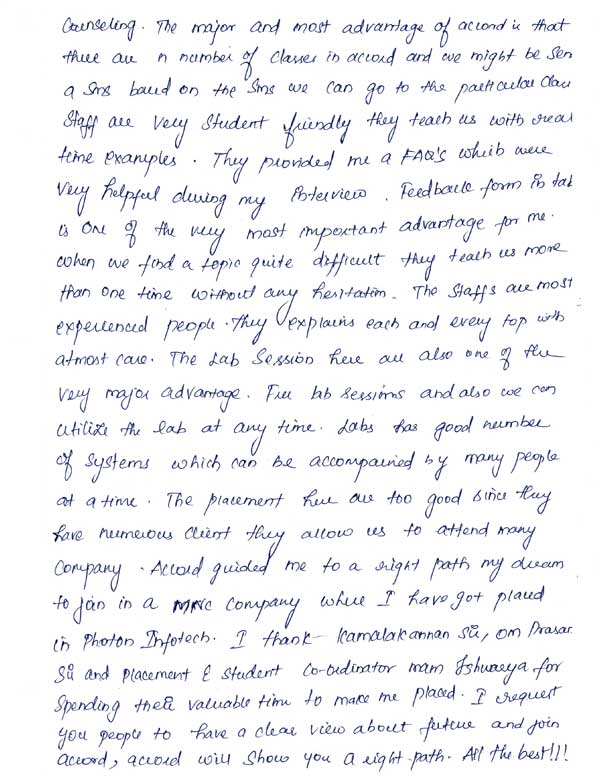 Counseling. The major and most advantage of accord is that
there are n number of classes in accord and we might be sen
a Sms based on the Sms we can go to the particular Class
Staff are very student friendly they teach us with real
time examples. They provided me a FAQ's which were
very helpful during my interview. Feedback form in tab
is one of the very most important advantage for me.
when we find a topic quite difficult they teach us more
than one time without any hesitation. The Staffs are most
experienced people. They explains each and every top with
atmost care. The Lab Session here are also one of the
very major advantage. Free lab sessions and also we can
utilize the lab at any time. Labs has good number
of systems which can be accompained by many people
at a time. The placement here are too good since they
have numerous client they allow us to attend many
company. Accord guided me to a right path my dream
to join in a MNC company where I have got placed
in Photon Infotech. I thank Kamalakannan Sir, Om Prasar
Sir and Placement & Student Co-ordinator mam Ishwarya for
Spending their valuable time to make me placed. I request
you people to have a clear view about future and join
accord, accord will show you a right path. All the best!!!